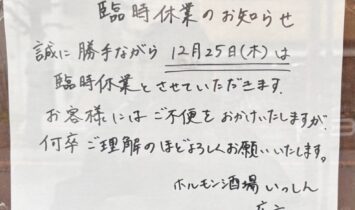 臨時休業のお知らせ
誠に勝手ながら 12月25日(木)は
臨時休業とさせていただきます.
お客様にはご不便をおかけいたしますが.
何卒ご理解のほどよろしくお願いいたします。
ホルモン酒場いっしん